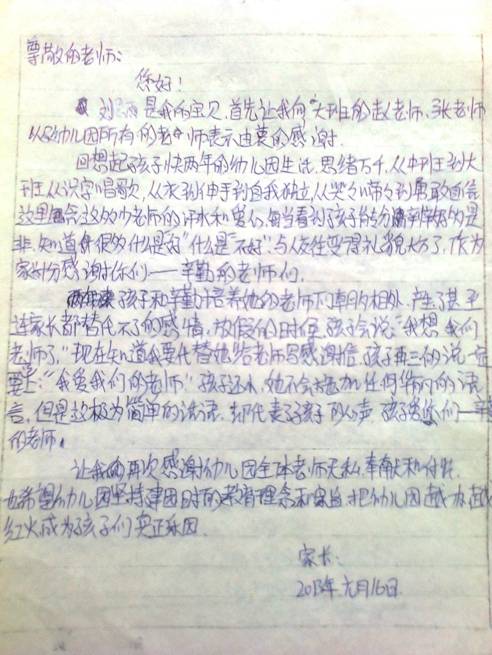 尊敬的老师:
您好!
刘 是我的宝贝,首先让我向大班的赵老师,张老师
以及幼儿园所有的老师表示由衷的感谢.
回想起孩子快两年的幼儿园生活,思绪万千,从中班到大
班,从识字唱歌,从衣到伸手到自我独立,从哭哭啼啼到勇敢自信
这里包含这多少老师的汗水和爱心,每当看到孩子能分辨
非,知道很多为什么是"好"什么是"不好",与人交往变得礼貌大方了,作为
家长十分感谢你们——辛勤的老师们.
两年来孩子和辛勤培养她的老师们朝夕相处,产生了甚至
连家长都替代不了的感情,放假的时候,孩子会说:"我想我们
老师了,"现在知道我要代替她给老师写感谢信,孩子再三的说一定
要写上:"我爱我们的老师"孩子还小,她不会增加任何华丽的语
言,但是这极为简单的话语,却代表了孩子的心声,孩子爱你们一辛
的老师,
让我再次感谢幼儿园全体老师无私奉献和付出,
也希望幼儿园坚持建园时的教育理念和宗旨,把幼儿园越办越
红火成为孩子们真正乐园.
家长:
2013年元月16日.